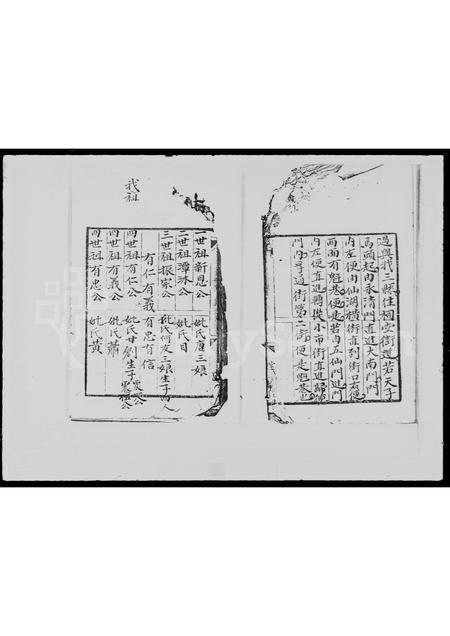 過與我三縣住祠堂街道若天子
馬頭起由永清門直進大南門門
內左便由仙湖橫街直到街口右便
兩面有魁巷便是若由五仙門進門
內左便直進轉從小市街直進歸德
門內孚通街第二街便是魁巷也
我祖
一世祖新恩公 妣氏唐三娘
二世祖潭沐公 妣氏目
三世祖振家公 妣氏何友三娘生子四人
有仁有義有忠有信
四世祖有仁公 妣氏甘劉生子
四世祖有義公 妣氏蕭
四世祖有忠公 妣氏黃